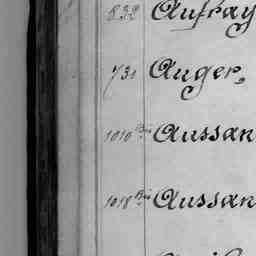 832 Aufray
731 Auger,
1010 Bis Aussan
1018 Bis Aussan